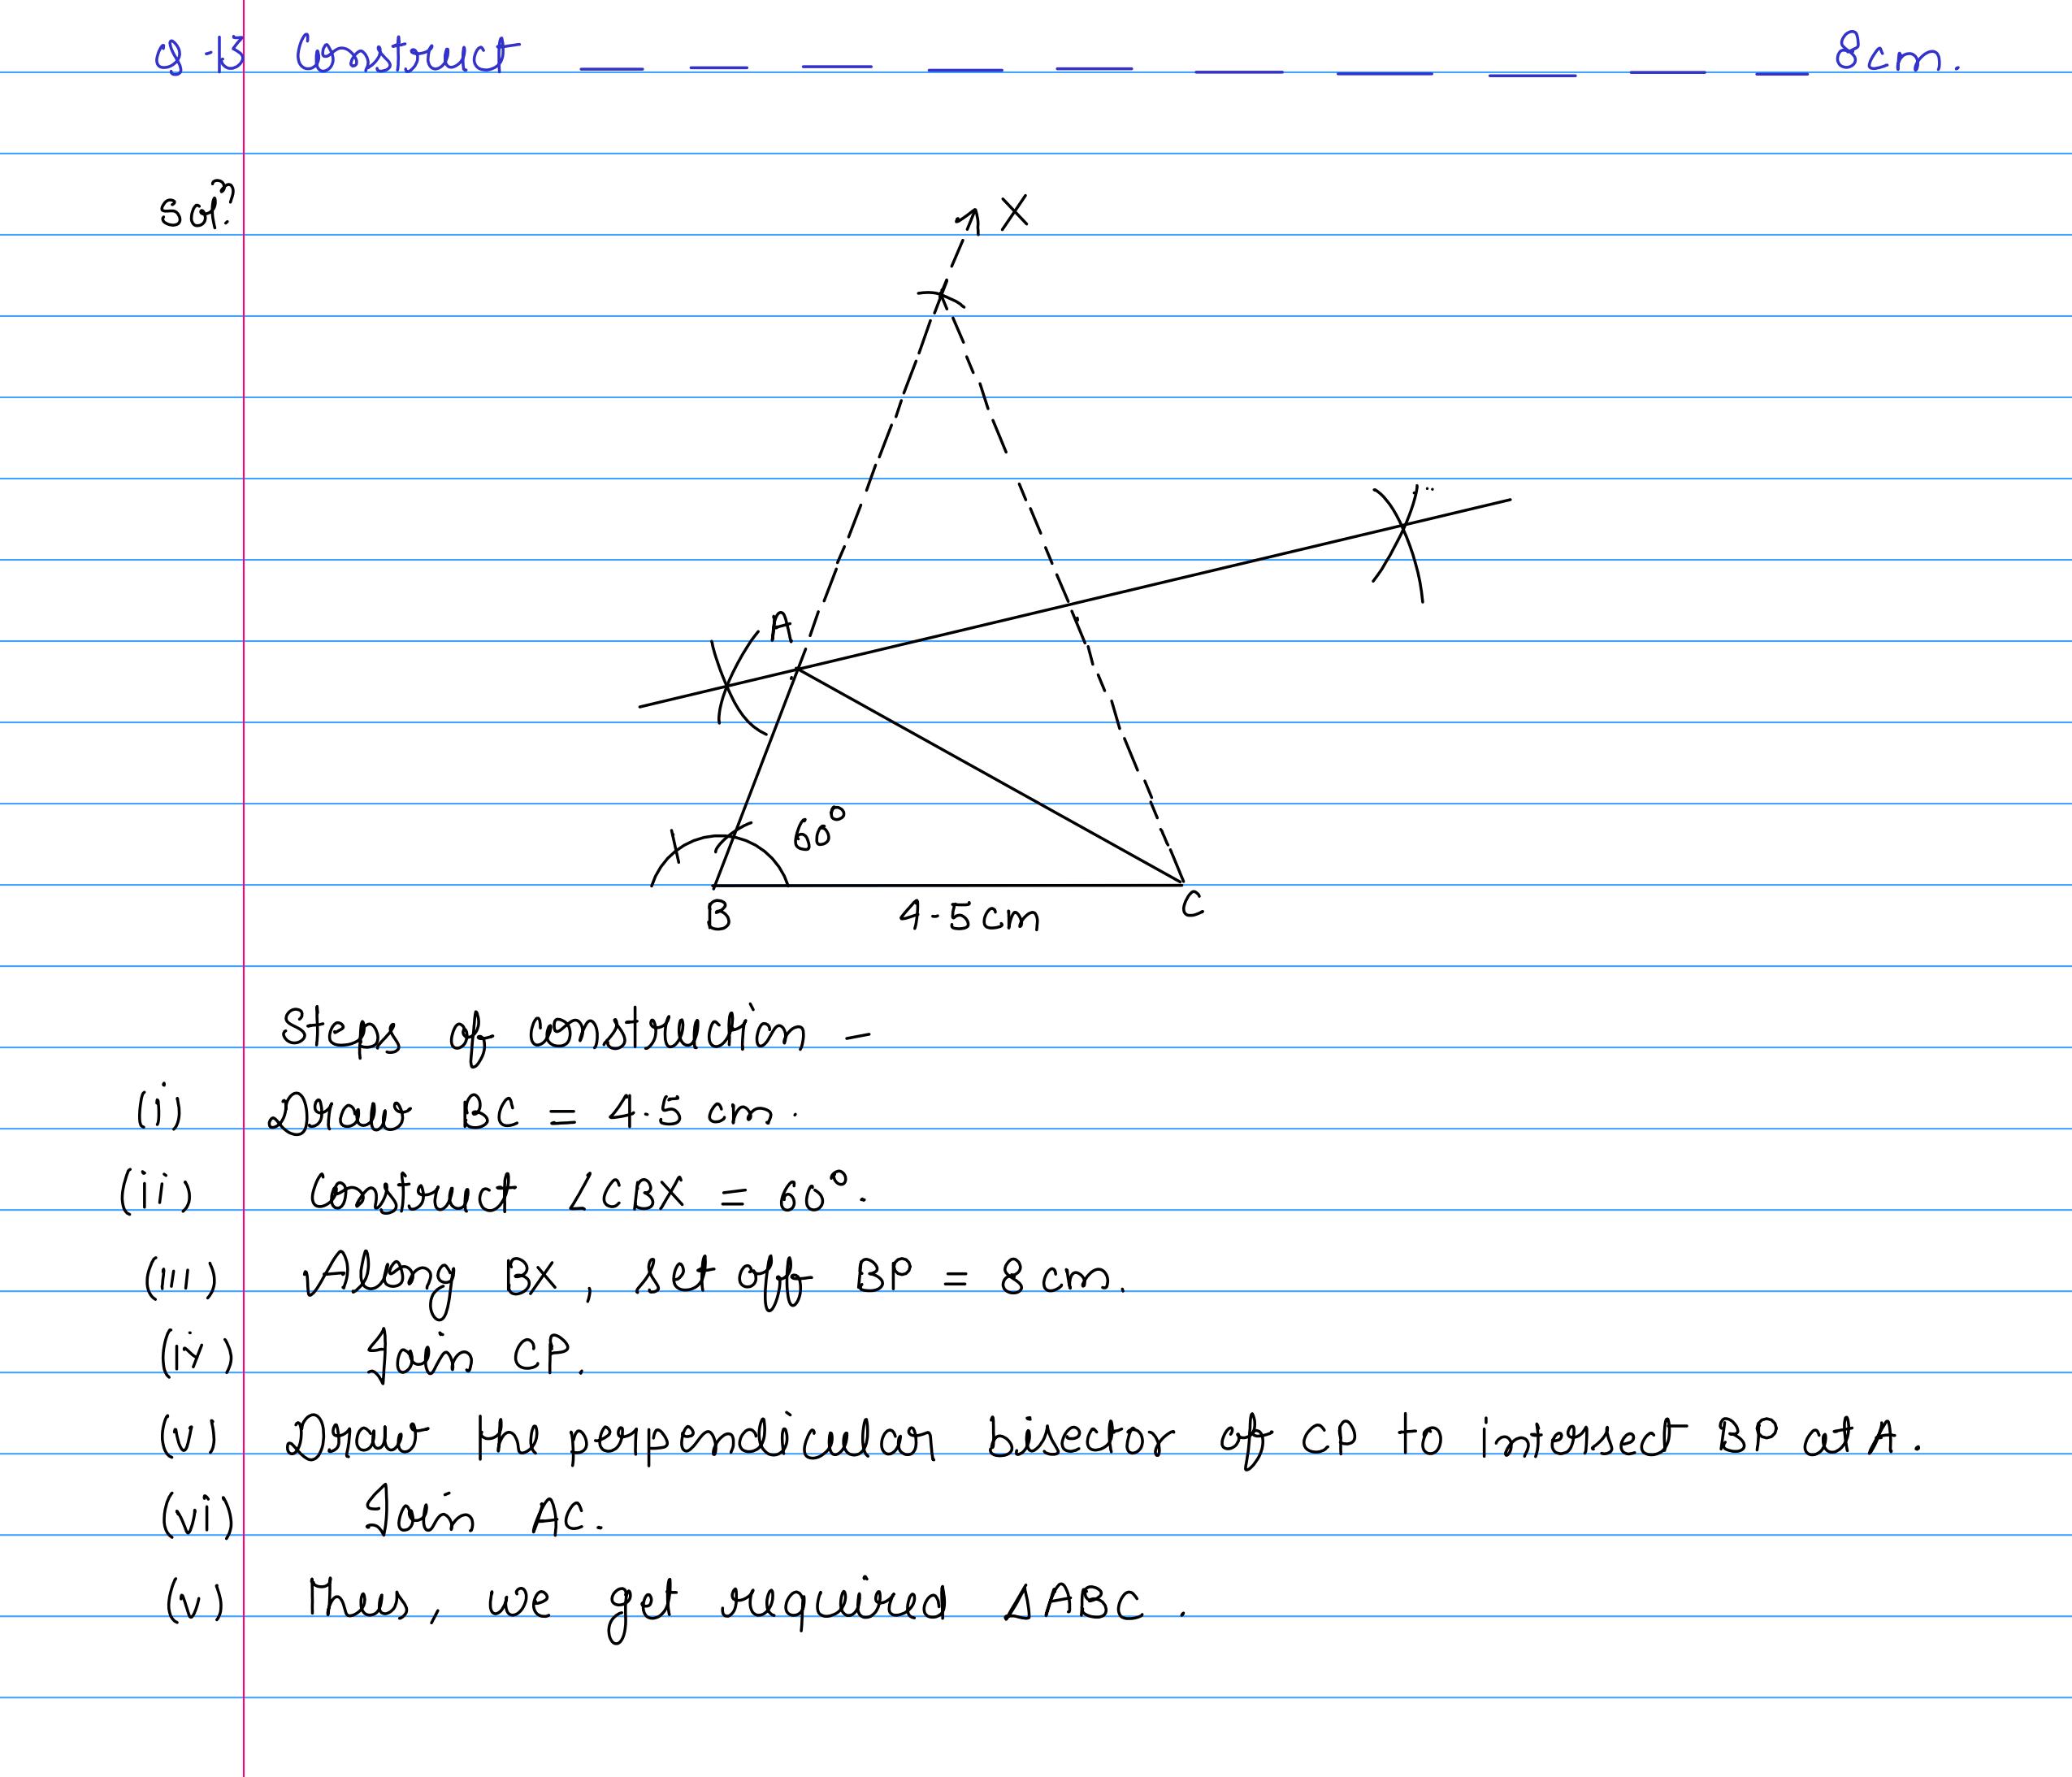 Q.13 Construct _ _ _ _ _ _ _ _ _ _ 8 cm.
Solⁿ.
X
A
60°
B 4.5 cm C
Steps of construction –
(i) Draw BC = 4.5 cm.
(ii) Construct ∠CBX = 60°.
(iii) Along BX, set off BP = 8 cm.
(iv) Join CP.
(v) Draw the perpendicular bisector of CP to intersect BP at A.
(vi) Join AC.
(v) Thus, we get required ΔABC.